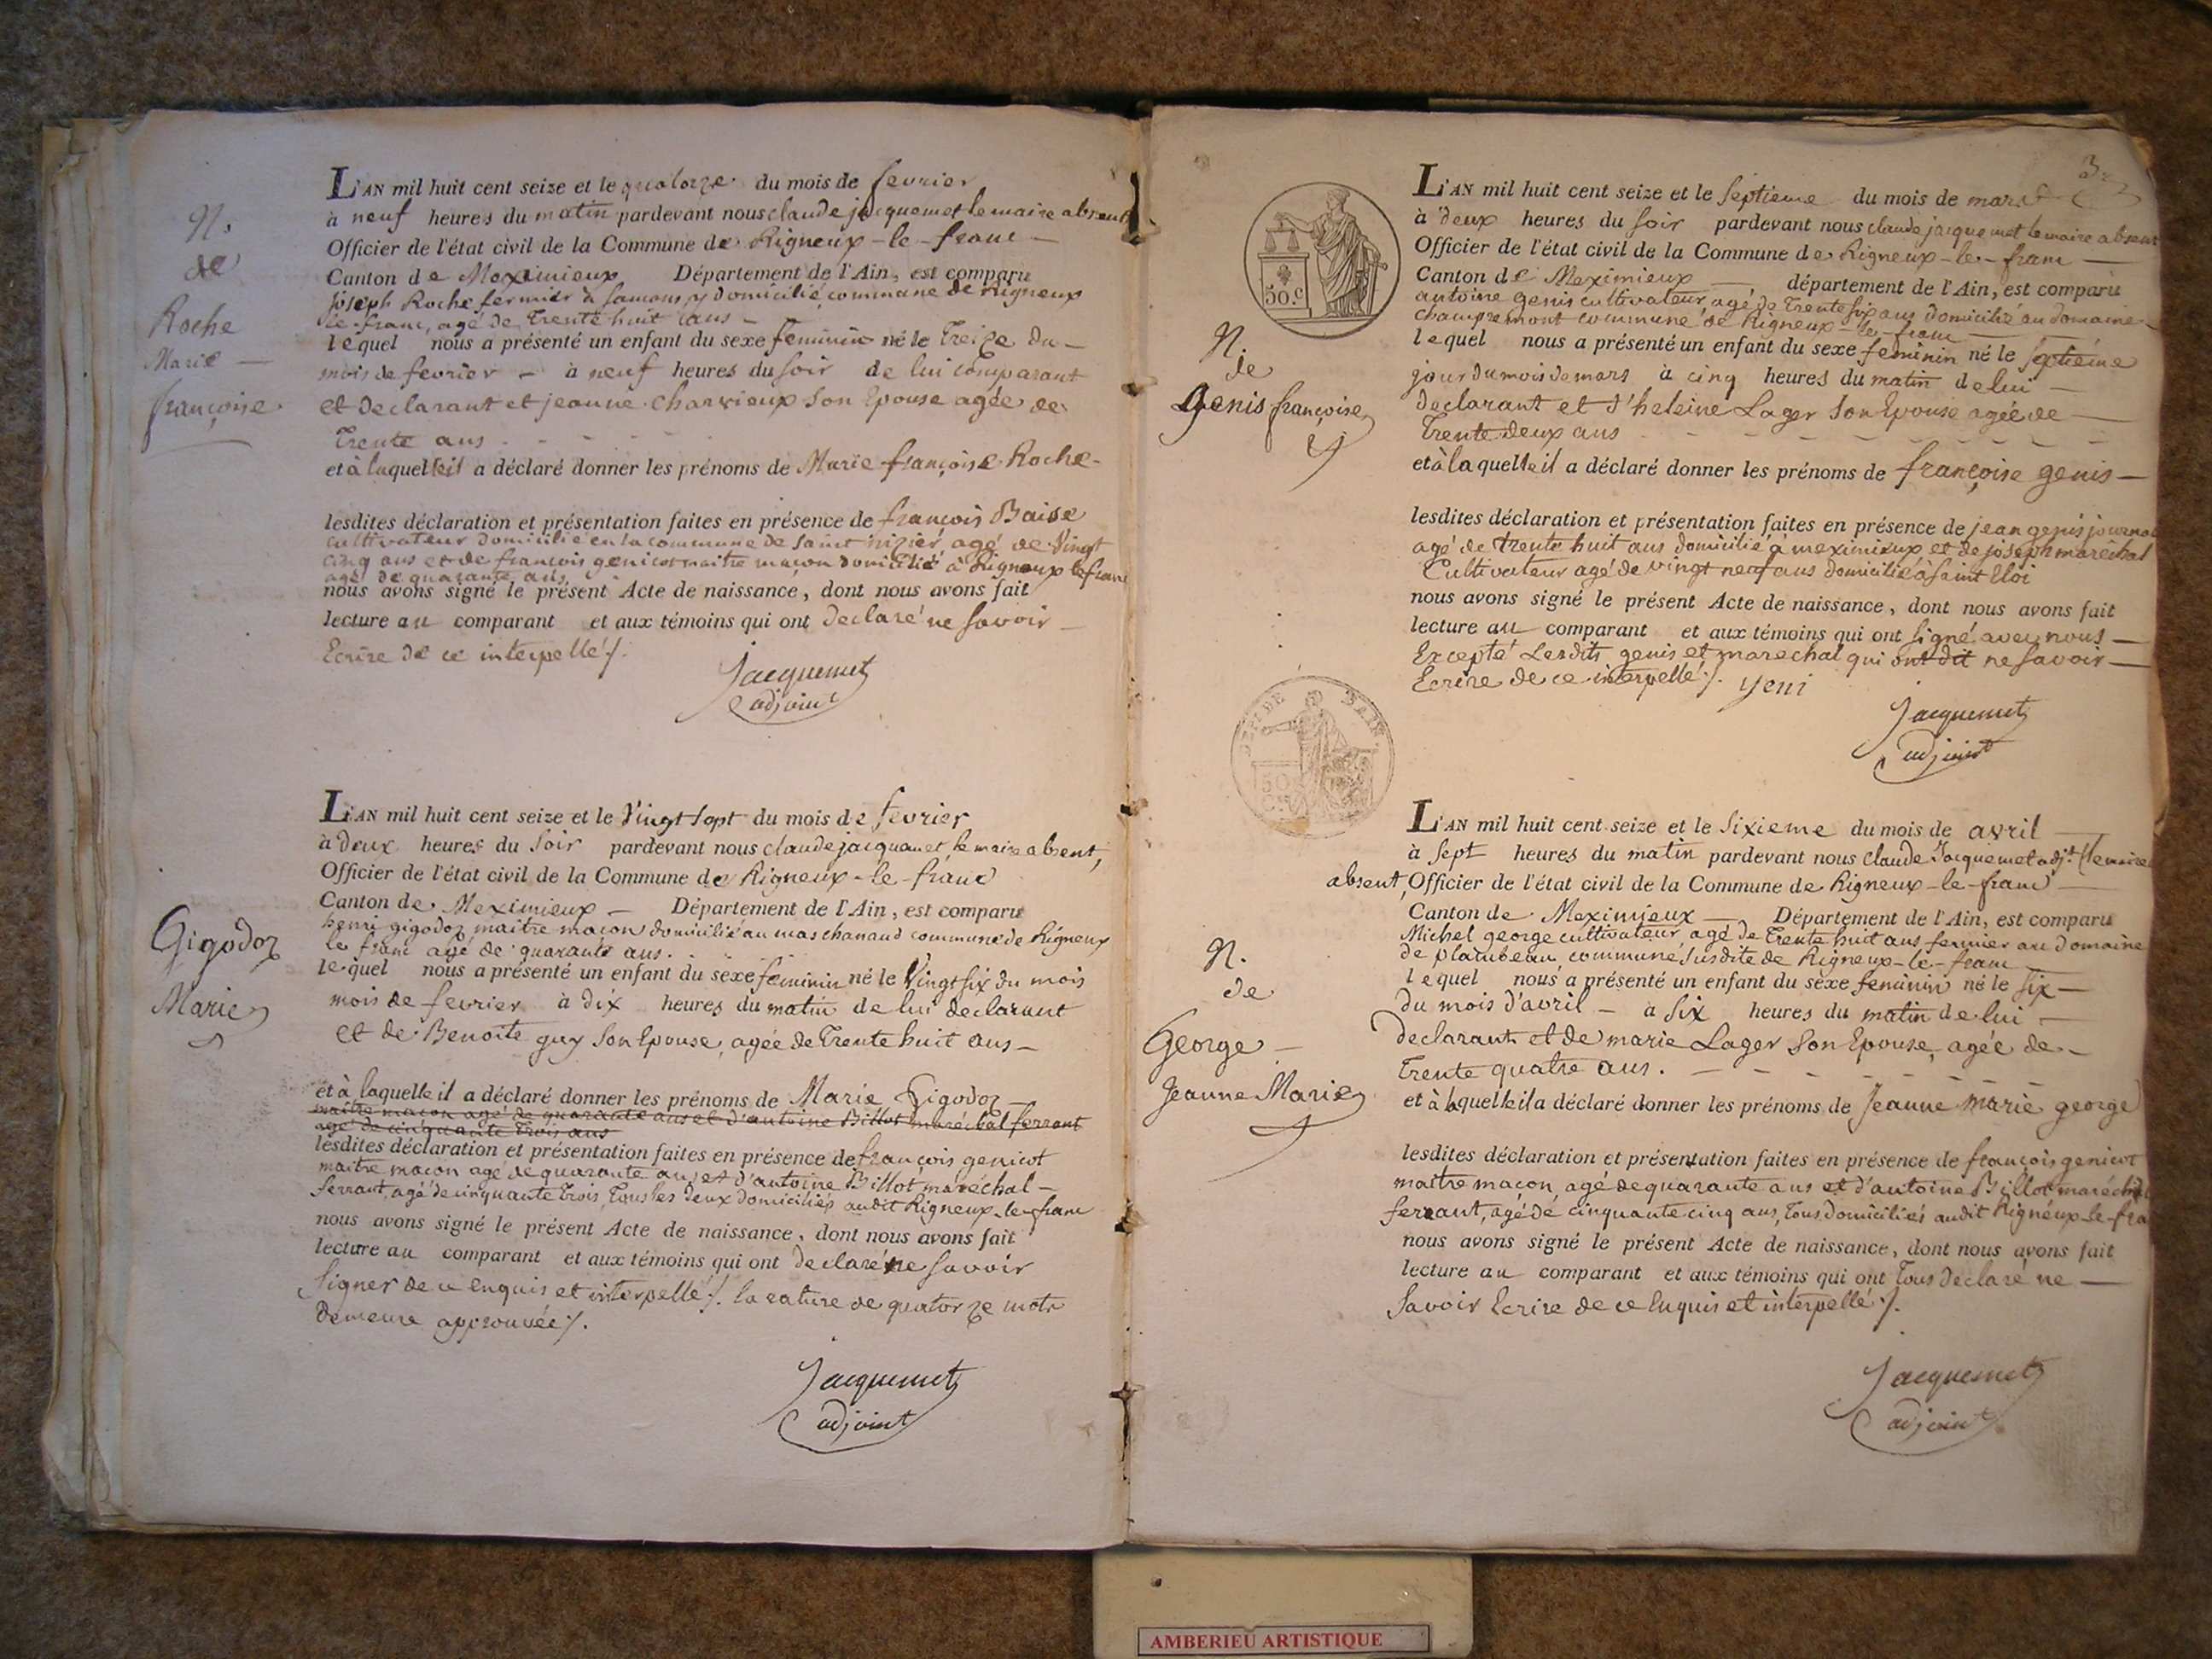 N.
de
Roche
Marie
françoise
L'AN mil huit cent seize et le quatorze du mois de fevrier
à neuf heures du matin pardevant nous claude jacquemet le maire absent
Officier de l'état civil de la Commune de Rigneux-le-franc
Canton de Meximieux Département de l'Ain, est comparu
joseph Roche fermier à samans y domicilié commune de Rigneux
le-franc, agé de trente huit ans
lequel nous a présenté un enfant du sexe feminin né le treize du
mois de fevrier à neuf heures du soir de lui comparant
et declarant et jeanne Charvieux son Epouse agée de
trente ans
et à laquelle il a déclaré donner les prénoms de Marie françoise Roche
lesdites déclaration et présentation faites en présence de françois Baise
cultivateur domicilié en la commune de saint nizier agé de Vingt
cinq ans et de francois genicot maitre macon domicilié à Rigneux le franc
agé de quarante ans
nous avons signé le présent Acte de naissance, dont nous avons fait
lecture au comparant et aux témoins qui ont declaré ne savoir
Ecrire de ce interpellé ./.
Jacquemet
adjoint
Gigodoz
Marie
L'AN mil huit cent seize et le Vingt sept du mois de fevrier
à deux heures du soir pardevant nous claude jacquemet, le maire absent,
Officier de l'état civil de la Commune de Rigneux-le-franc
Canton de Meximieux Département de l'Ain, est comparu
henri gigodoz maitre macon domicilié au mas chanaud commune de Rigneux
le franc agé de quarante ans.
lequel nous a présenté un enfant du sexe feminin né le Vingt six du mois
mois de fevrier à dix heures du matin de lui declarant
et de Benoite guy son Epouse, agée de trente huit ans
et à laquelle il a déclaré donner les prénoms de Marie Gigodoz
maitre macon agé de quarante ans et d'antoine Billot maréchal ferrant
agé de cinquante trois ans
lesdites déclaration et présentation faites en présence de françois genicot
maitre macon agé de quarante ans et d'antoine Billot maréchal
ferrant, agé de cinquante trois, tous les deux domiciliés audit Rigneux-le-franc
nous avons signé le présent Acte de naissance, dont nous avons fait
lecture au comparant et aux témoins qui ont declaré ne savoir
signer de ce enquis et interpellé ./. la rature de quatorze mots
demeure approuvée ./.
Jacquemet
adjoint
3
50.c
N.
de
Genis françoise
L'AN mil huit cent seize et le septieme du mois de mars
à deux heures du soir pardevant nous claude jacquemet le maire absent
Officier de l'état civil de la Commune de Rigneux-le-franc
Canton de Meximieux département de l'Ain, est comparu
antoine genis cultivateur, agé de trente six ans domicilié au domaine
champremont commune de Rigneux-le-franc
lequel nous a présenté un enfant du sexe feminin né le septiéme
jour du mois de mars à cinq heures du matin de lui
declarant et d'heleine Lager son Epouse agée de
trente deux ans
et à laquelle il a déclaré donner les prénoms de françoise genis
lesdites déclaration et présentation faites en présence de jean genis journal
agé de trente huit ans domicilié à meximieux et de joseph maréchal
Cultivateur agé de vingt neuf ans domicilié à saint Eloi
nous avons signé le présent Acte de naissance, dont nous avons fait
lecture au comparant et aux témoins qui ont signé avec nous
Excepté Lesdits genis et marechal qui ont dit ne savoir
Ecrire de ce interpellé ./. yeni
Jacquemet
adjoint
DEPT DE L'AIN
50
C.
N.
de
George
Jeanne Marie
L'AN mil huit cent seize et le sixieme du mois de avril
à sept heures du matin pardevant nous claude Jacquemet adjt (le maire
absent, Officier de l'état civil de la Commune de Rigneux-le-franc
Canton de Meximieux Département de l'Ain, est comparu
Michel george cultivateur agé de trente huit ans fermier au domaine
de platubeau commune susdite de Rigneux-le-franc
lequel nous a présenté un enfant du sexe feminin né le six
du mois d'avril à six heures du matin de lui
declarant et de marie Lager son Epouse, agée de
trente quatre ans.
et à laquelle il a déclaré donner les prénoms de Jeanne marie george
lesdites déclaration et présentation faites en présence de françois genicot
maitre macon agé de quarante ans et d'antoine Billot maréchal
ferrant, agé de cinquante cinq ans, tous domiciliés audit Rigneux-le-fra
nous avons signé le présent Acte de naissance, dont nous avons fait
lecture au comparant et aux témoins qui ont tous declaré ne
savoir Ecrire de ce Enquis et interpellé ./.
Jacquemet
adjoint
AMBERIEU ARTISTIQUE